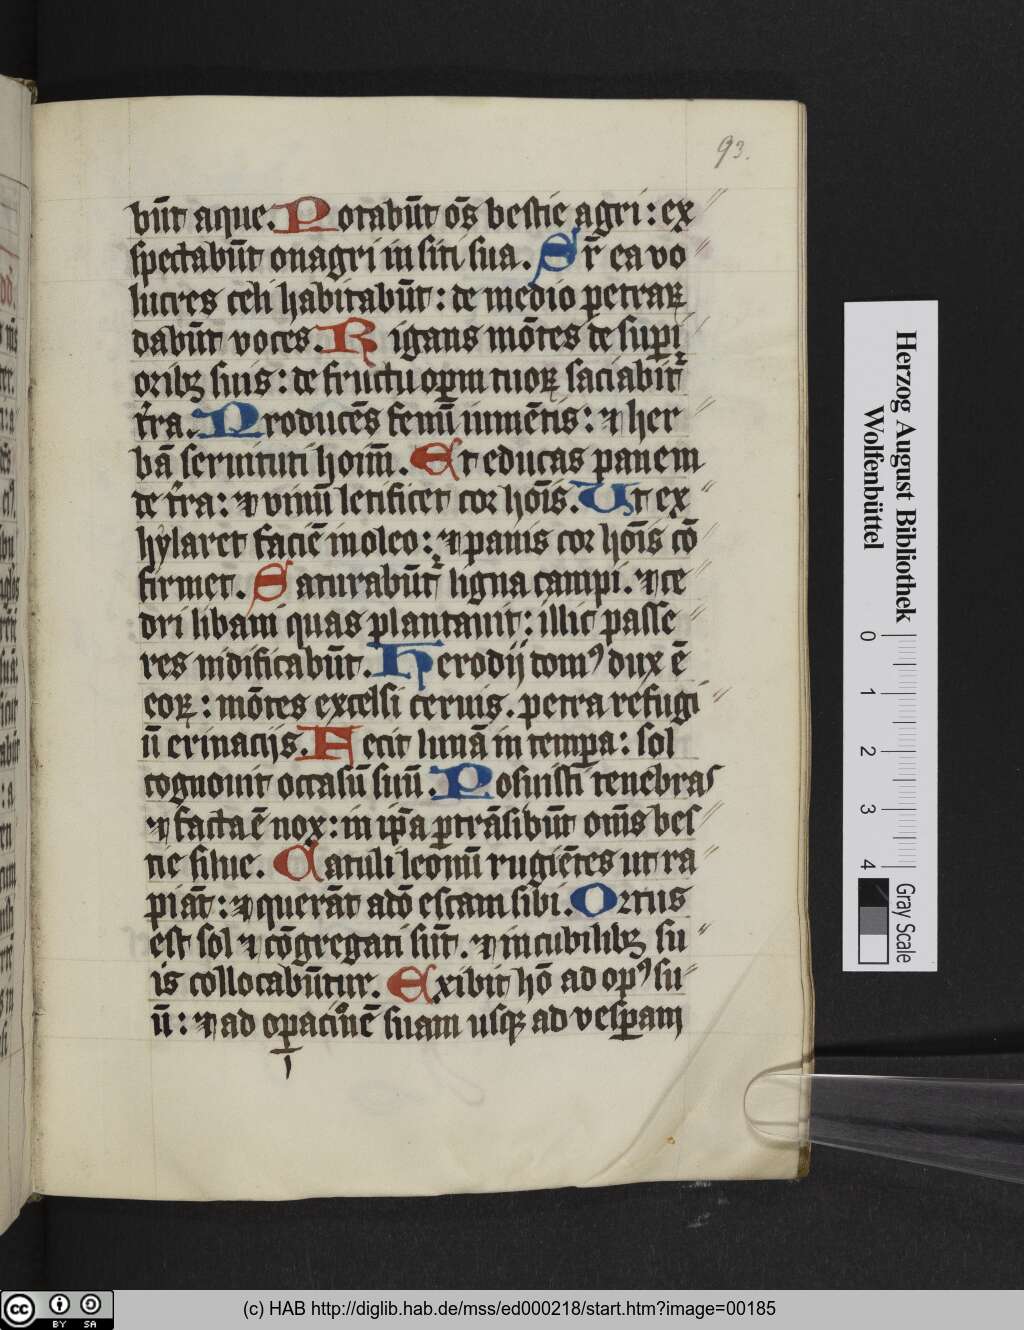 93.
būt aque. Potabūt oēs bestie agri : ex
spectabūt onagri in siti sua. Sr̄ ea vo
lucres celi habitabūt : de medio petraꝝ
dabūt voces. Rigans mōtes de sup̄i
oribꝫ suis : de fructu operm tuoꝝ saciabit̄
t̄ra. Producēs fenū iumētis : ⁊ her
bā seruituti hoīm̄. Et educas panem
de t̄ra : ⁊ vinū letificet cor hoīs. Ut ex
hylaret faciē in oleo : ⁊ panis cor hoīs cō
firmet. Saturabūt̄ ligna campi. ⁊ ce
dri libani quas plantauit : illic passe
res nidificabūt. Herodij domꝰ dux ē
eoꝝ : mōtes excelsi ceruis. petra refugi
ū erinacijs. Fecit lunā in tempa : sol
cognouit occasū suū. Posuisti tenebras
⁊ facta ē nox : in ip̄a ꝑtrāsibūt om̄s bes
tie silue. Catuli leonū rugiētes ut ra
piāt : ⁊ querāt a dō escam sibi. Ortus
est sol ⁊ cōgregati sūt. ⁊ in cubilibꝫ su
is collocabūtur. Exibit hō ad opꝰ su
ū : ⁊ ad oꝑacionē suam usqꝫ ad vesꝑam
Herzog August Bibliothek
Wolfenbüttel
0 1 2 3 4
Gray Scale
cc BY SA
(c) HAB http://diglib.hab.de/mss/ed000218/start.htm?image=00185